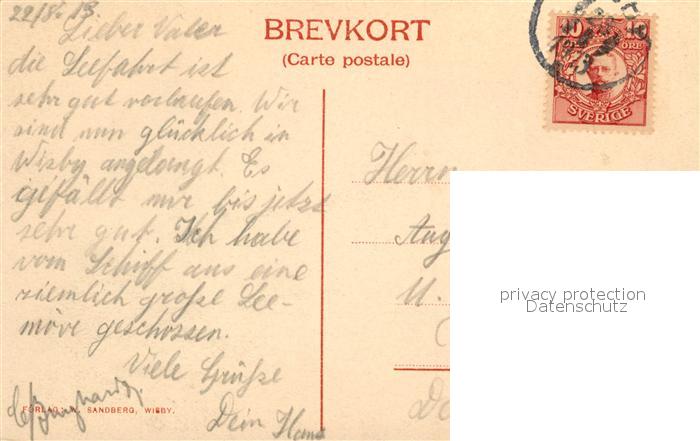 22/8. 13
Lieber Vater
die Seefahrt ist
sehr gut verlaufen. Wir
sind nun glücklich in
Wisby angelangt. Es
gefällt mir bis jetzt
sehr gut. Ich habe
vom Schiff aus eine
ziemlich große See-
möve geschossen.
Viele Grüße
Dein Hans
FÖRLAG: W. SANDBERG, WISBY.
BREVKORT
(Carte postale)
10 10
ÖRE
SVERIGE
Herrn
Aug
U.
privacy protection
Datenschutz